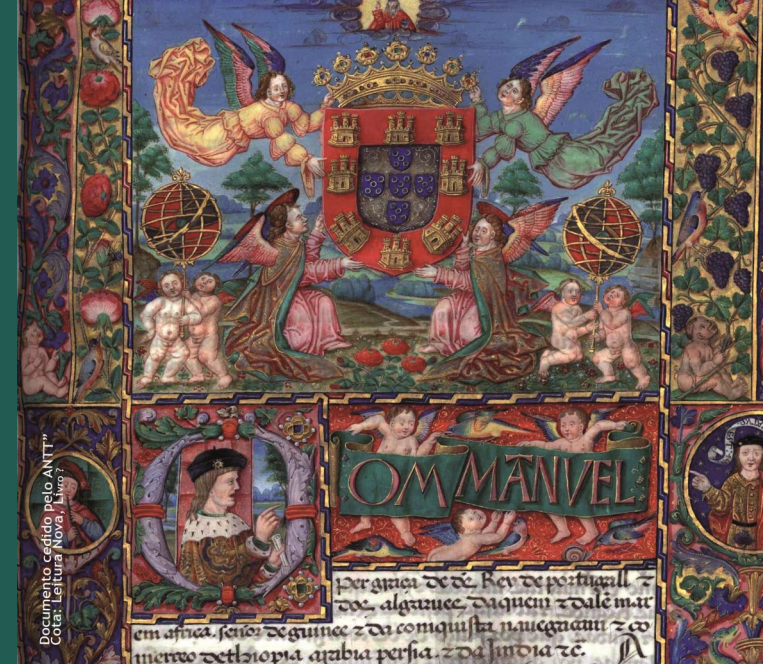 Documento cedido pelo ANTT”
Cota: Leitura Nova, Livro ?
OM MÃNVEL
per graça de ds̄. Rey de portugall z
dos algarues, daquem z dalē mar
em africa. senor de guinee z da comquista nauegaçam z co
merceo dethiopia arabia persia. z da Jmdia zc̄. A